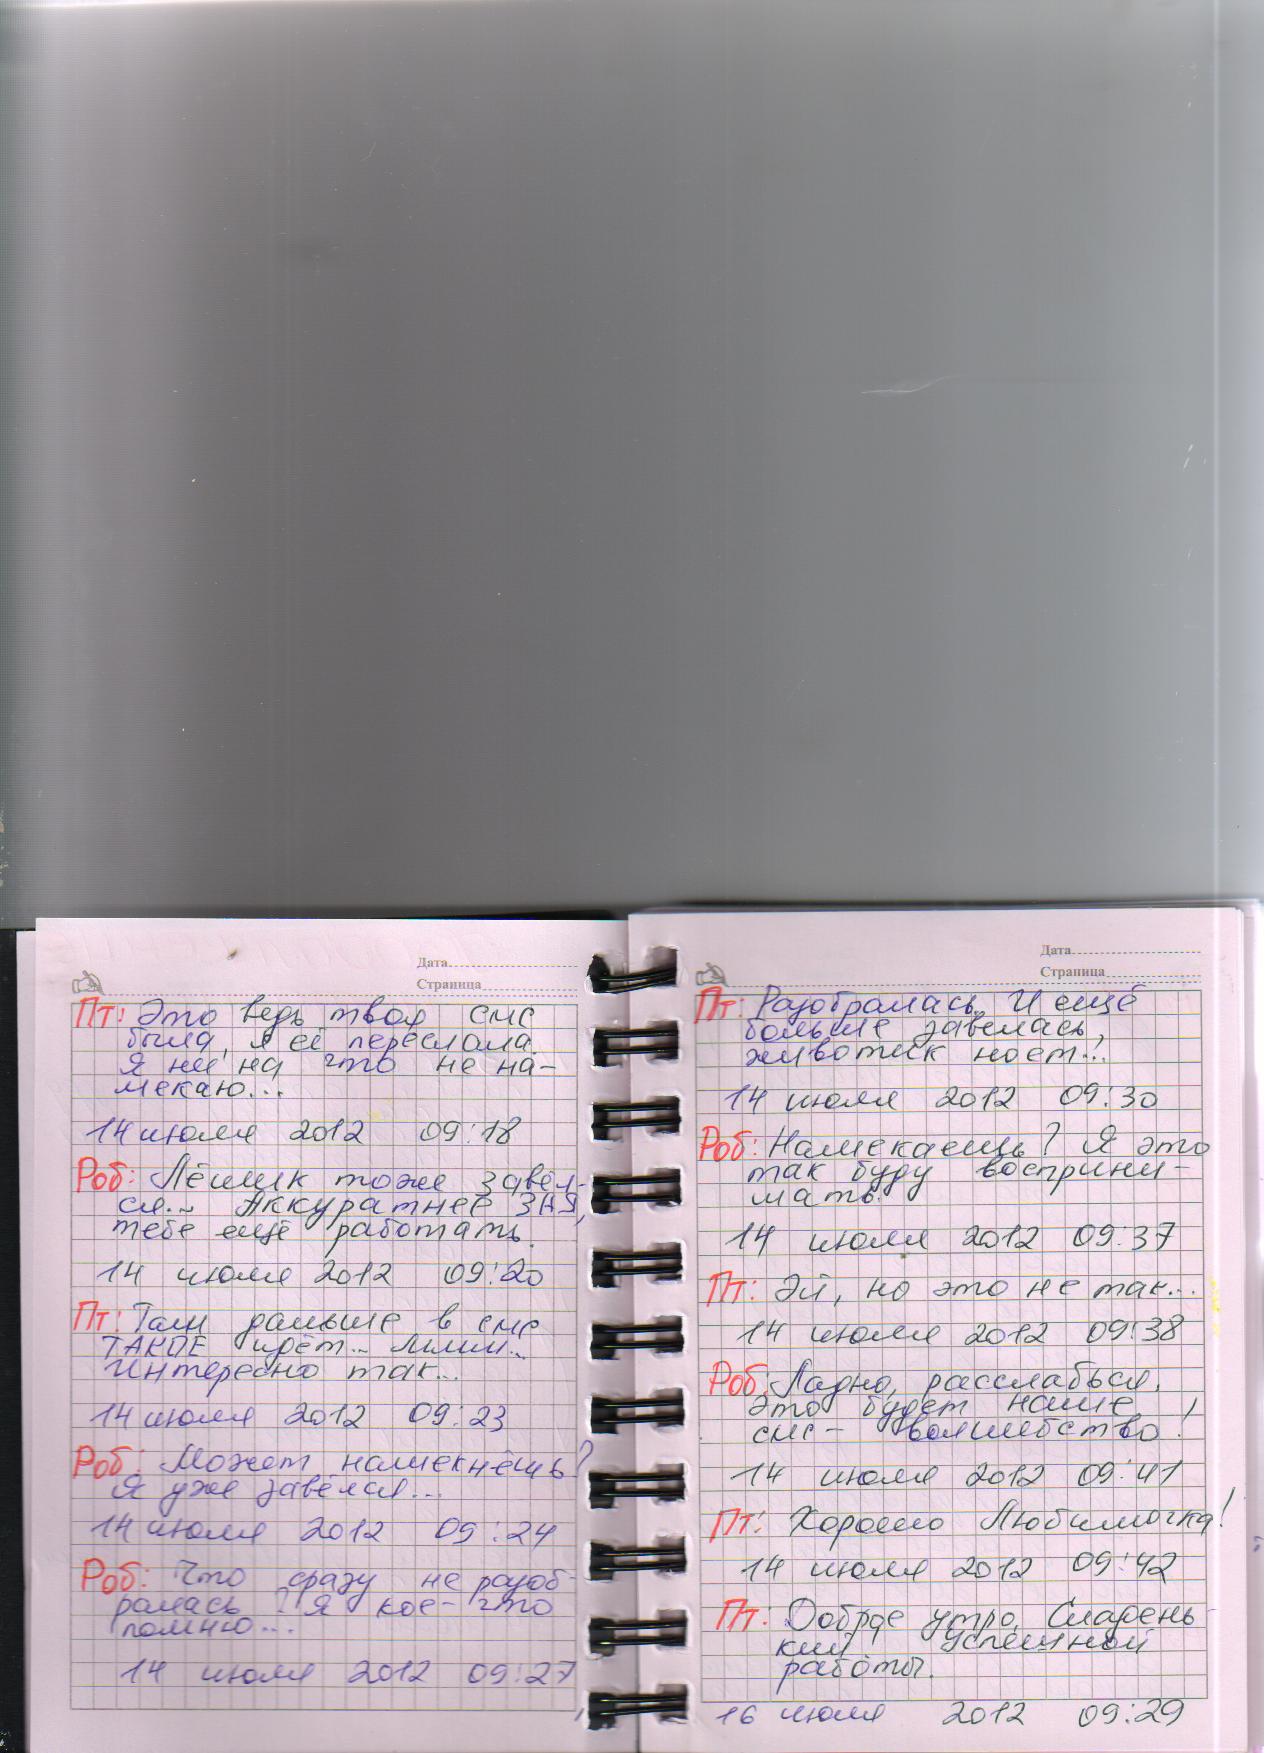 Дата
Страница
Пт: Это ведь твоя смс
была, я её переслала.
Я ни на что не на-
мекаю...
14 июля 2012 09:18
Роб: Лёшик тоже завёл-
ся... Аккуратнее ЗАЯ,
тебе ещё работать.
14 июля 2012 09:20
Пт: Там дальше в смс
ТАКОЕ идёт... Ммм...
Интересно так...
14 июля 2012 09:23
Роб: Может намекнёшь?
Я уже завёлся...
14 июля 2012 09:24
Роб: Что сразу не разоб-
ралась? Я кое-что
помню...
14 июля 2012 09:27
Дата
Страница
Пт: Разобралась. И ещё
больше завелась,
животик ноет...
14 июля 2012 09:30
Роб: Намекаешь? Я это
так буду восприни-
мать.
14 июля 2012 09:37
Пт: Эй, но это не так...
14 июля 2012 09:38
Роб: Ладно, расслабься.
Это будет наше
смс- волшебство!
14 июля 2012 09:41
Пт: Хорошо Любимочка!
14 июля 2012 09:42
Пт: Доброе утро, Сладень-
кий успешной
работы.
16 июля 2012 09:29